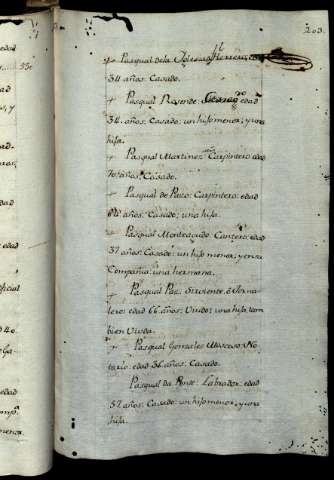 203.
Pasqual dela Iglesia: Herrero, edad
34 años: Casado.
Pasqual Resende: edad
34. años: Casado: un hijo menor; y una
hija.
Pasqual Martinez Carpintero edad
70 años: Casado.
Pasqual de Pazo: Carpintero: edad
años: Casado: una hija.
Pasqual Monteagudo Cantero: edad
37 años: Casado: un hijo menor, y en su
Compañia una hermana.
Pasqual Paz. Sirviente, ó Jorna
lero: edad 66 años: Viudo: una hija tam
bien Viuda.
Pasqual Gonzales Mascoso No
tario: edad 36 años: Casado.
Pasqual da Ponte: Labrador: edad
52 años: Casado: un hijo menor, y una
hija.